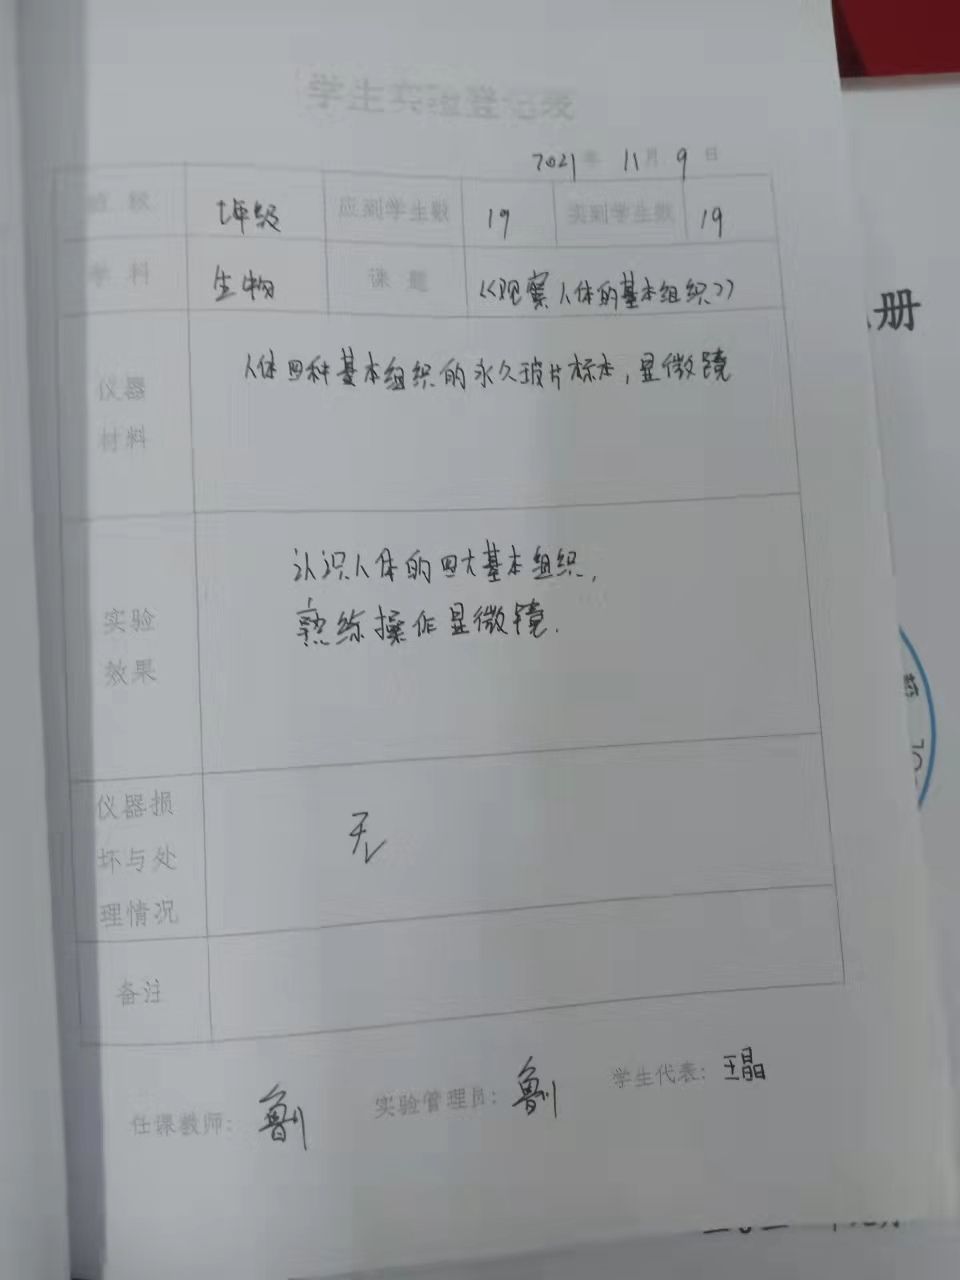 学生实验登记表
2021年 11月 9日
班级 七年级 应到学生数 19 实到学生数 19
学科 生物 课题 《观察人体的基本组织》
仪器
材料
人体四种基本组织的永久玻片标本，显微镜
实验
效果
认识人体的四大基本组织，
熟练操作显微镜.
仪器损
坏与处
理情况
无
备注
任课教师: 实验管理员: 学生代表: 王晶
册